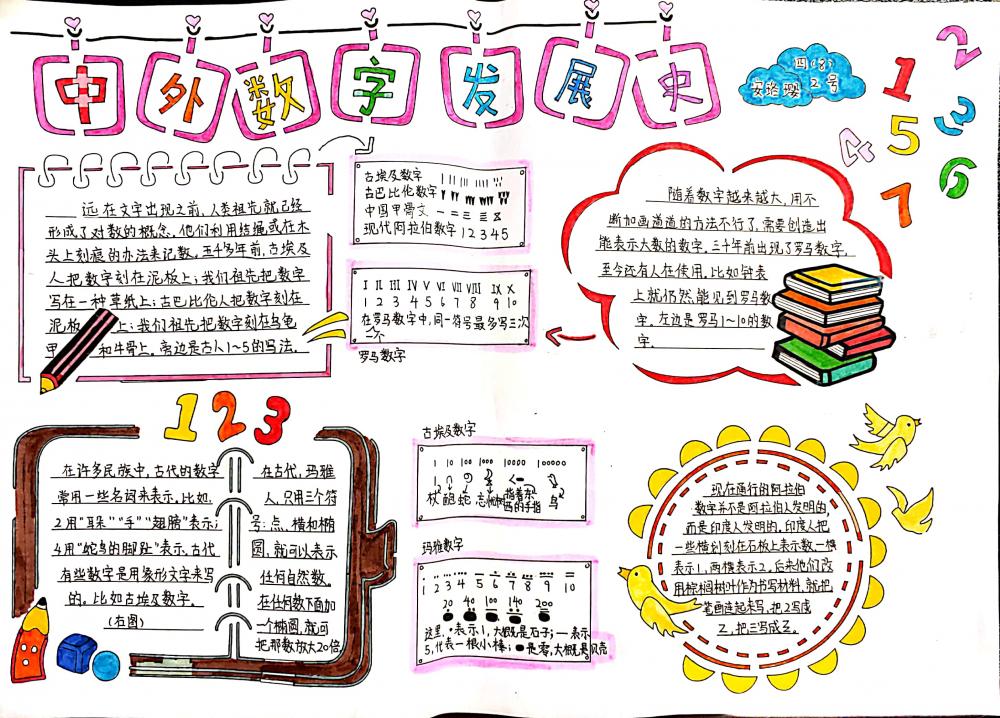 中外数字发展史
四(8)
2号
1 2 3 4 5 6 7
远在文字出现之前,人类祖先就已经
形成了对数的概念。他们利用结绳或在木
头上刻痕的办法来记数。五千多年前,古埃及
人把数字刻在泥板上;我们祖先把数字
写在一种草纸上;古巴比伦人把数字刻在
泥板上;我们祖先把数字刻在乌龟
甲和牛骨上。旁边是古人1~5的写法。
古埃及数字
古巴比伦数字
中国甲骨文
现代阿拉伯数字 1 2 3 4 5
I II III IV V VI VII VIII IX X
1 2 3 4 5 6 7 8 9 10
在罗马数字中,同一符号最多写三次
一个
罗马数字
随着数字越来越大,用不
断加画道道的方法不行了,需要创造出
能表示大数的数字。三千年前出现了罗马数字,
至今还有人在使用。比如钟表
上就仍然能见到罗马数
字。左边是罗马1~10的数
字.
1 2 3
在许多民族中,古代的数字
常用一些名词来表示。比如,
2用“耳朵”“手”“翅膀”表示;
4用“鸵鸟的脚趾”表示。古代
有些数字是用象形文字来写
的。比如古埃及数字。
(右图)
在古代,玛雅
人,只用三个符
号:点、横和椭
圆,就可以表示
任何自然数。
在任何数下面加
一个椭圆,就可
把那数放大20倍
古埃及数字
1 10 100 1000 10000 100000
杖 蛇 指着东 鸟
西的手指
玛雅数字
1 2 3 4 5 6 7 8 9 10
20 40 100 140 200
这里,•表示1,大概是石子;—表示
5,代表一根小棒;是零,大概是贝壳
现在通行的阿拉伯
数字并不是阿拉伯人发明的
而是印度人发明的。印度人把
一些横划刻在石板上表示数,一横
表示1,两横表示2。后来他们改
用棕榈树叶作为书写材料,就把
笔画连起来写。把2写成
Z,把三写成